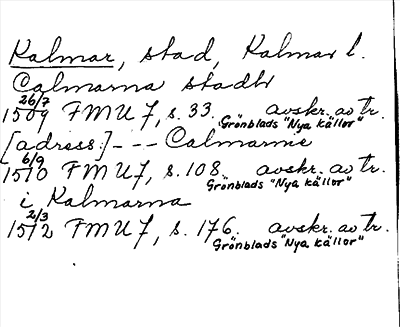 Kalmar, stad, Kalmar l.
Calmarna stadh
26/7
1509 FMU 7, s. 33. avskr. av tr.
Grönblads "Nya källor"
[adress:] - - - Calmarne
6/9
1510 FMU 7, s. 108. avskr. av tr.
Grönblads "Nya källor"
i Kalmarna
2/3
1512 FMU 7, s. 176. avskr. av tr.
Grönblads "Nya källor"